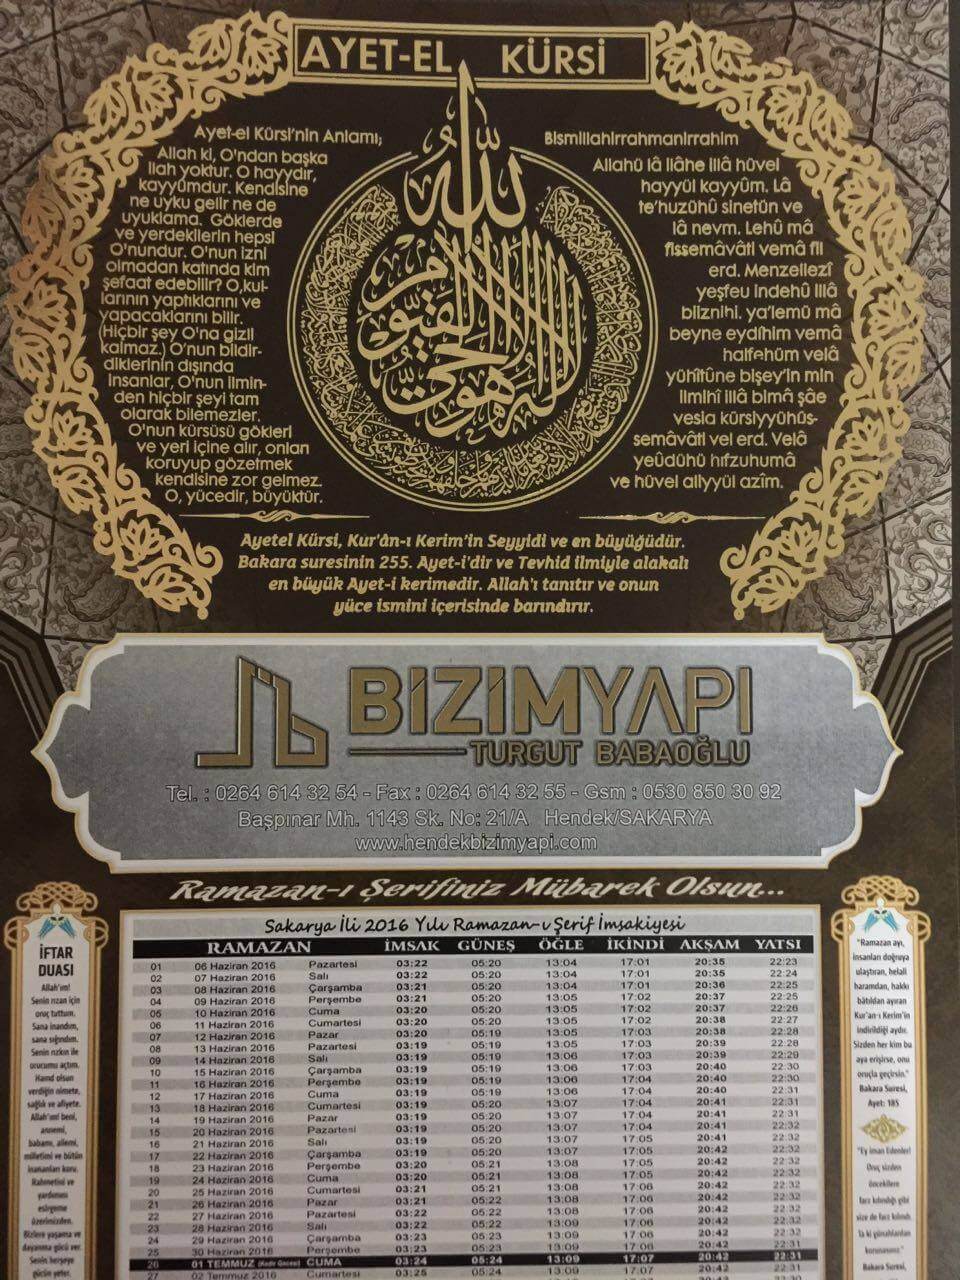 AYET-EL KÜRSİ
Ayet-el Kürsi'nin Anlamı;
Allah ki, O'ndan başka
ilah yoktur. O hayydir,
kayyûmdur. Kendisine
ne uyku gelir ne de
uyuklama. Göklerde
ve yerdekilerin hepsi
O'nundur. O'nun izni
olmadan katında kim
şefaat edebilir? O,kul-
larının yaptıklarını ve
yapacaklarını bilir.
(Hiçbir şey O'na gizli
kalmaz.) O'nun bildir-
diklerinin dışında
insanlar, O'nun ilmin-
den hiçbir şeyi tam
olarak bilemezler.
O'nun kürsüsü gökleri
ve yeri içine alır, onları
koruyup gözetmek
kendisine zor gelmez.
O, yücedir, büyüktür.
الله لا اله الا هو الحي القيوم
Bismillahirrahmanirrahim
Allahü lâ ilâhe illâ hüvel
hayyül kayyûm. Lâ
te'huzühû sinetün ve
lâ nevm. Lehû mâ
fissemâvâti vemâ fil
erd. Menzellezî
yeşfeu indehû illâ
biiznihi. ya'lemü mâ
beyne eydîhim vemâ
halfehüm velâ
yühîtûne bişey'in min
ilmihî illâ bimâ şâe
vesia kürsiyyühüs-
semâvâti vel erd. Velâ
yeûdühü hıfzuhumâ
ve hüvel aliyyül azîm.
Ayetel Kürsi, Kur'ân-ı Kerim'in Seyyidi ve en büyüğüdür.
Bakara suresinin 255. Ayet-i'dir ve Tevhid ilmiyle alakalı
en büyük Ayet-i kerimedir. Allah'ı tanıtır ve onun
yüce ismini içerisinde barındırır.
BİZİMYAPI
TURGUT BABAOĞLU
Tel. : 0264 614 32 54 - Fax : 0264 614 32 55 - Gsm : 0530 850 30 92
Başpınar Mh. 1143 Sk. No: 21/A Hendek/SAKARYA
www.hendekbizimyapi.com
Ramazan-ı Şerifiniz Mübarek Olsun...
İFTAR
DUASI
Allah'ım!
Senin rızan için
oruç tuttum.
Sana inandım,
sana sığındım.
Senin rızkın ile
orucumu açtım.
Hamd olsun
verdiğin nimete,
sağlık ve afiyete.
Allah'ım! beni,
annemi,
babamı, ailemi,
milletimi ve bütün
inananları koru.
Rahmetini ve
yardımını
esirgeme
üzerimizden.
Bizlere yaşama ve
dayanma gücü ver.
Senin herşeye
gücün yeter.
Sakarya İli 2016 Yılı Ramazan-ı Şerif İmsakiyesi
RAMAZAN İMSAK GÜNEŞ ÖĞLE İKİNDİ AKŞAM YATSI
01 06 Haziran 2016 Pazartesi 03:22 05:20 13:04 17:01 20:35 22:23
02 07 Haziran 2016 Salı 03:22 05:20 13:04 17:01 20:35 22:24
03 08 Haziran 2016 Çarşamba 03:21 05:20 13:04 17:01 20:36 22:25
04 09 Haziran 2016 Perşembe 03:21 05:20 13:05 17:02 20:37 22:25
05 10 Haziran 2016 Cuma 03:20 05:20 13:05 17:02 20:37 22:26
06 11 Haziran 2016 Cumartesi 03:20 05:20 13:05 17:02 20:38 22:27
07 12 Haziran 2016 Pazar 03:20 05:19 13:05 17:03 20:38 22:28
08 13 Haziran 2016 Pazartesi 03:19 05:19 13:05 17:03 20:39 22:28
09 14 Haziran 2016 Salı 03:19 05:19 13:06 17:03 20:39 22:29
10 15 Haziran 2016 Çarşamba 03:19 05:19 13:06 17:03 20:40 22:30
11 16 Haziran 2016 Perşembe 03:19 05:19 13:06 17:04 20:40 22:30
12 17 Haziran 2016 Cuma 03:19 05:19 13:06 17:04 20:40 22:31
13 18 Haziran 2016 Cumartesi 03:19 05:20 13:07 17:04 20:41 22:31
14 19 Haziran 2016 Pazar 03:19 05:20 13:07 17:04 20:41 22:31
15 20 Haziran 2016 Pazartesi 03:19 05:20 13:07 17:04 20:41 22:32
16 21 Haziran 2016 Salı 03:19 05:20 13:07 17:05 20:41 22:32
17 22 Haziran 2016 Çarşamba 03:19 05:20 13:07 17:05 20:42 22:32
18 23 Haziran 2016 Perşembe 03:20 05:21 13:08 17:05 20:42 22:32
19 24 Haziran 2016 Cuma 03:20 05:21 13:08 17:05 20:42 22:32
20 25 Haziran 2016 Cumartesi 03:21 05:21 13:08 17:06 20:42 22:32
21 26 Haziran 2016 Pazar 03:21 05:22 13:08 17:06 20:42 22:32
22 27 Haziran 2016 Pazartesi 03:22 05:22 13:08 17:06 20:42 22:32
23 28 Haziran 2016 Salı 03:22 05:22 13:09 17:06 20:42 22:32
24 29 Haziran 2016 Çarşamba 03:23 05:23 13:09 17:06 20:42 22:32
25 30 Haziran 2016 Perşembe 03:23 05:23 13:09 17:06 20:42 22:31
26 01 TEMMUZ (Kadir Gecesi) CUMA 03:24 05:24 13:09 17:07 20:42 22:31
27 02 Temmuz 2016 Cumartesi 03:25
"Ramazan ayı,
insanları doğruya
ulaştıran, helali
haramdan, hakkı
bâtıldan ayıran
Kur'an-ı Kerim'in
indirildiği aydır.
Sizden her kim bu
aya erişirse, onu
oruçla geçirsin."
Bakara Suresi,
Ayet: 185
"Ey iman Edenler!
Oruç sizden
öncekilere
farz kılındığı gibi
size de farz kılındı.
Ta ki günahlardan
korunasınız"
Bakara Suresi,